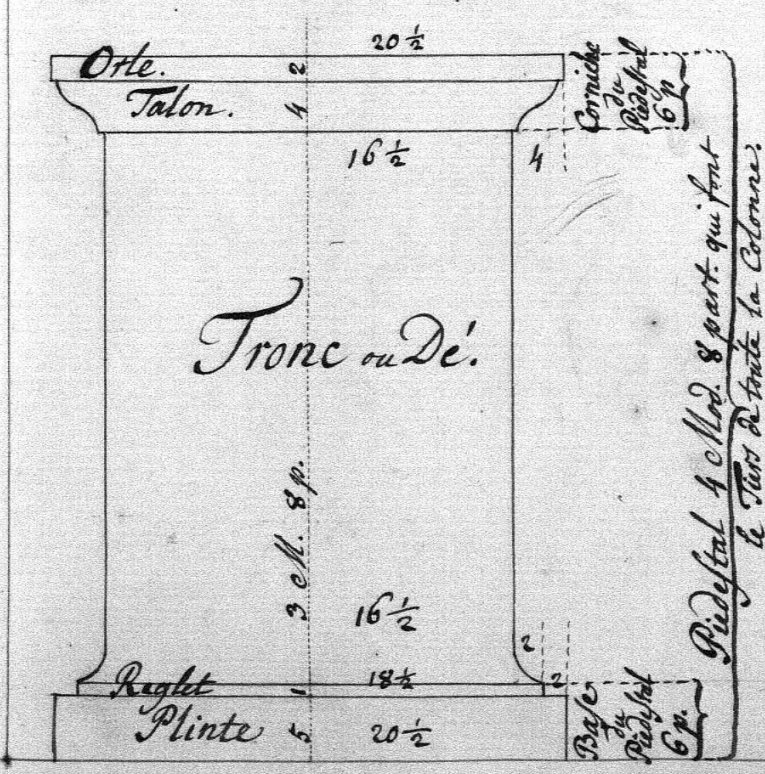 20 1/2
Orle. 2
Talon. 4
Corniche
du
Piédestal
6 p
16 1/2
4
Tronc ou Dé.
3 M. 8 p.
16 1/2
2
Reglet 1
18 1/2
2
Plinte 5
20 1/2
Base
du
Piédestal
6 p.
Piédestal 4 Mod. 8 part. qui font
le Tiers de toute la Colonne.